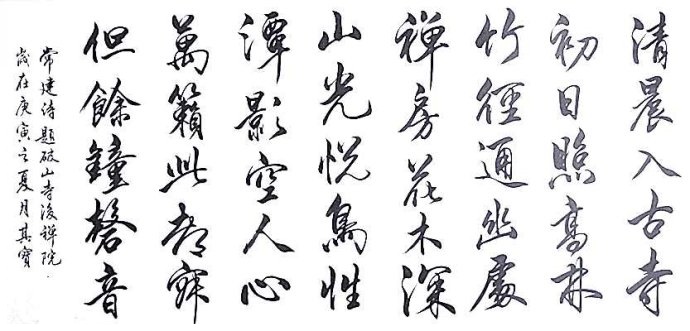 清晨入古寺
初日照高林
竹徑通幽處
禅房花木深
山光悅鳥性
潭影空人心
萬籟此都寂
但餘鐘磬音
常建诗題破山寺後禅院
歲在庚寅之夏月其寶